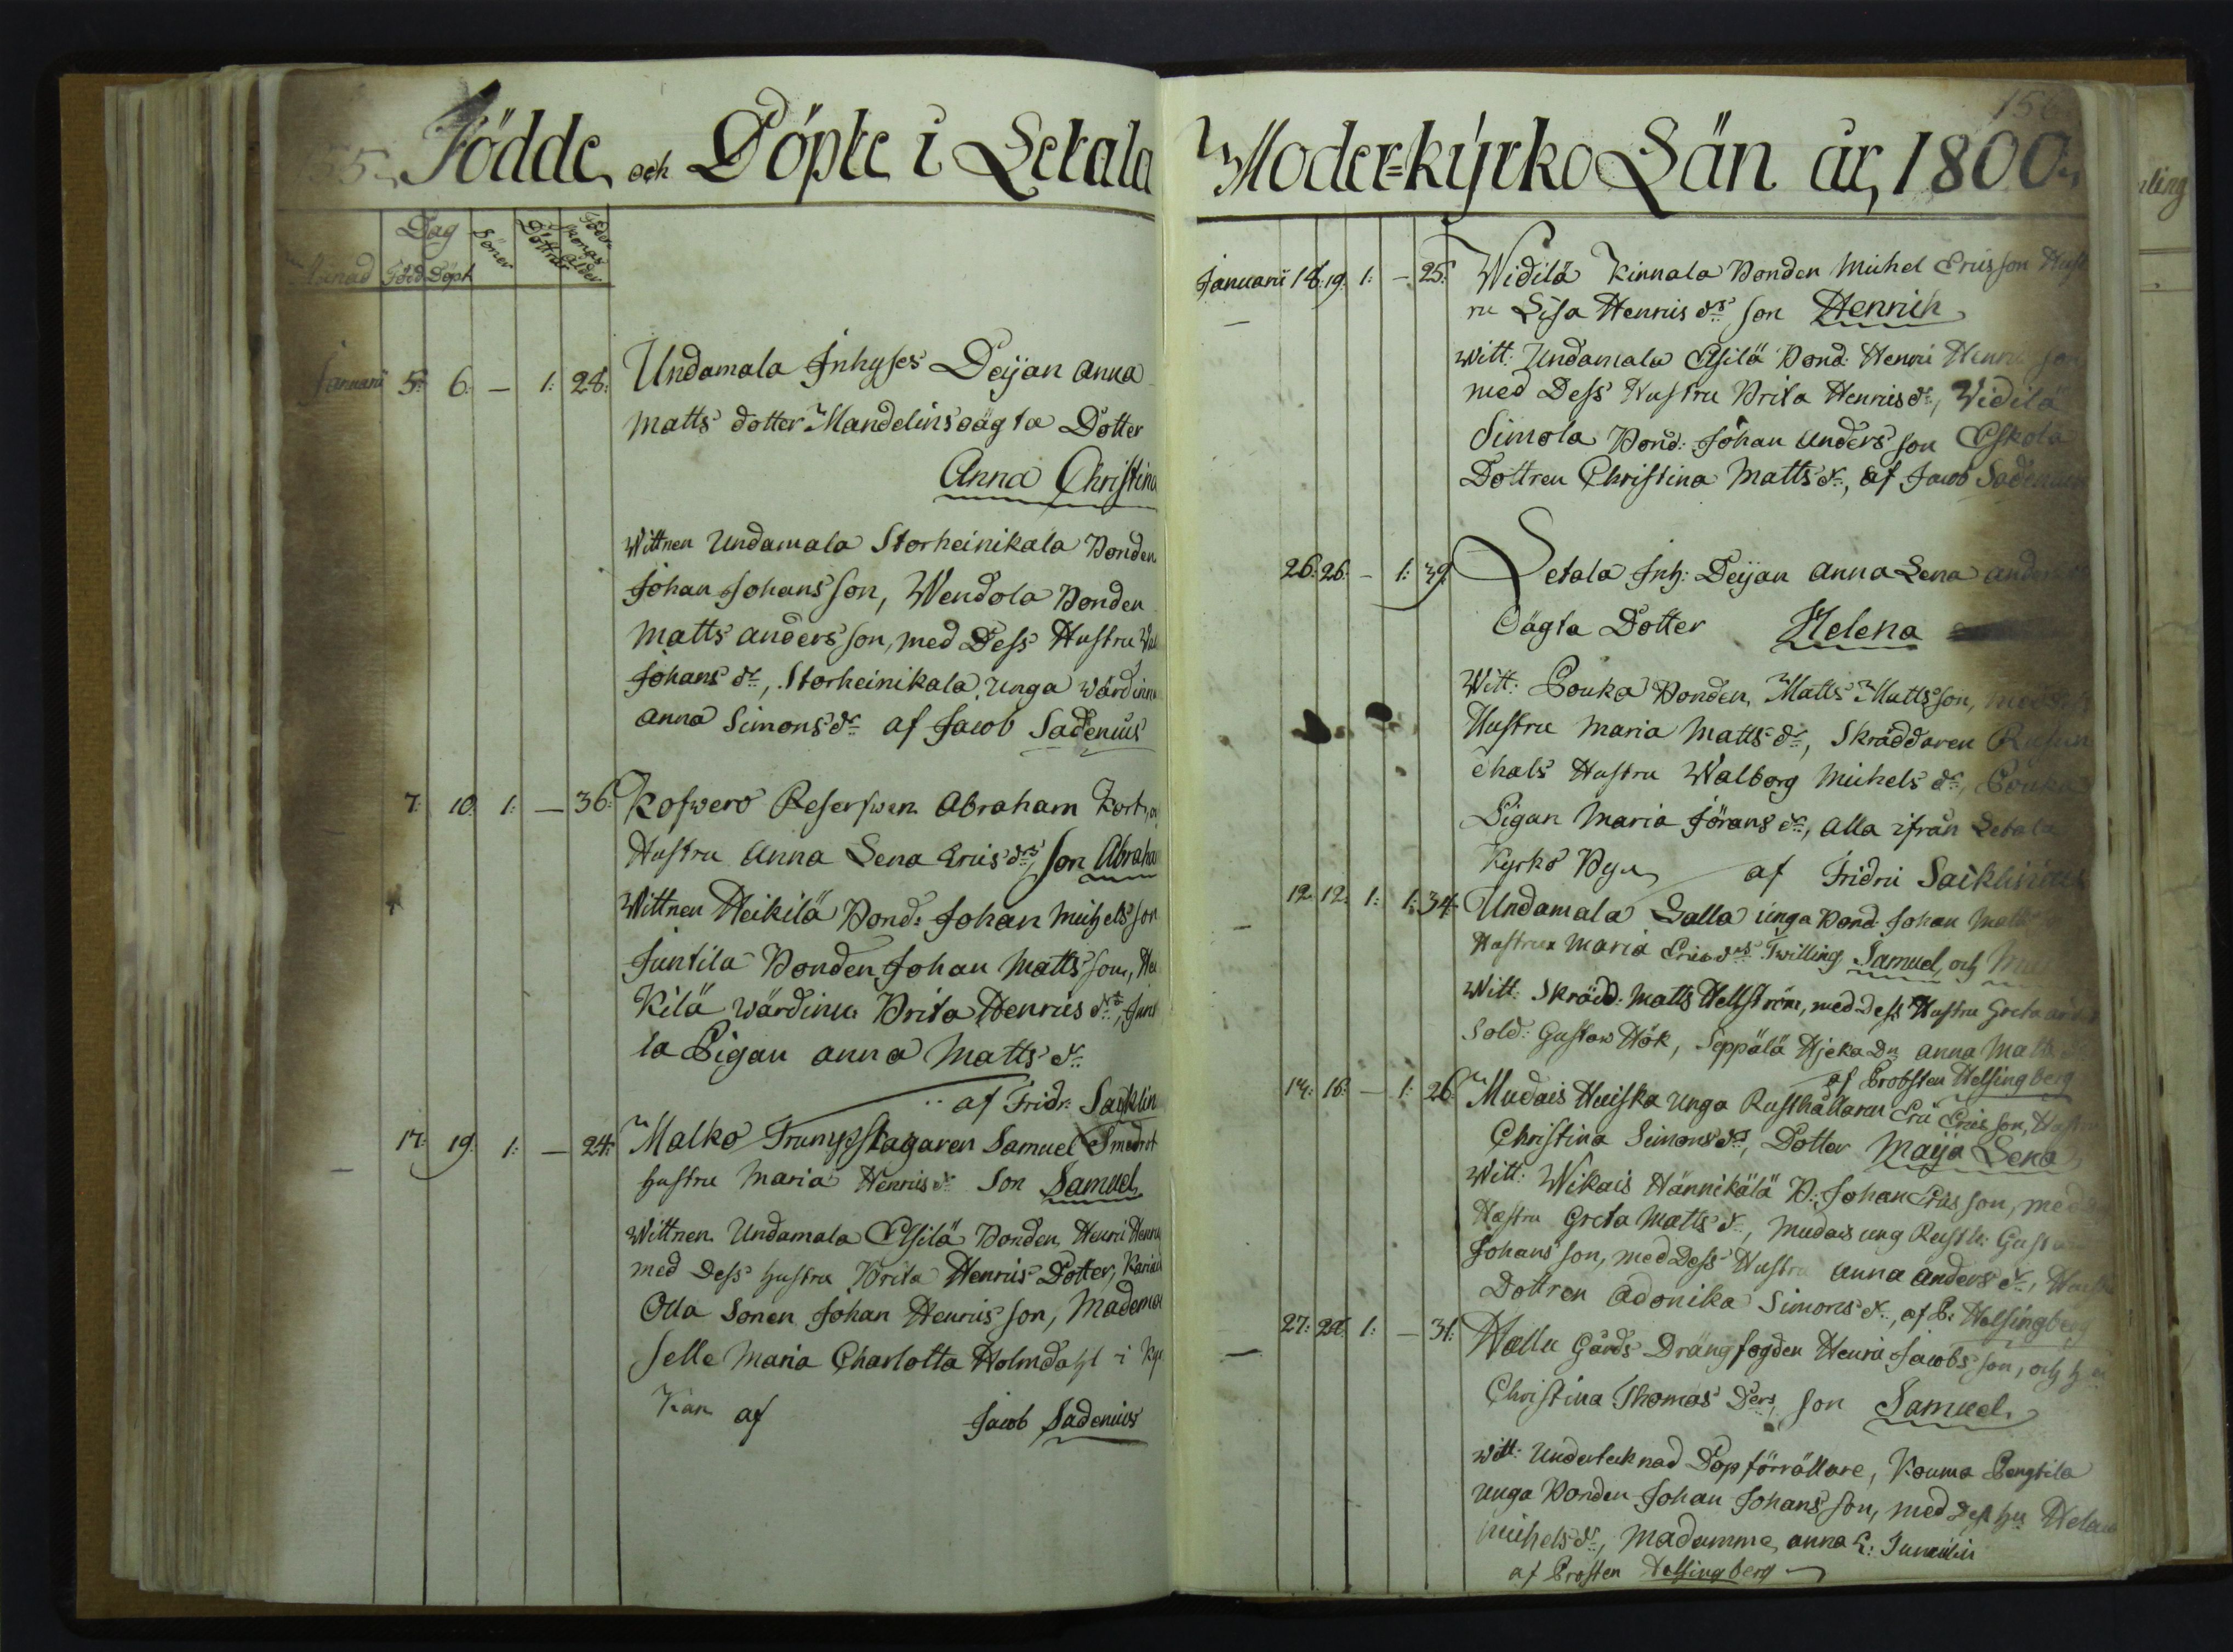 55. Födde och Döpte i Letala
Månad Dag Söner Döttrar Föderskones ålder
Född Döpt
Januarii 5. 6. — 1: 28: Undamala Inhyses Deijan Anna
Matts dotter Mandelins oägta Dotter
Anna Christina
Wittnen Undamala Storheinikala Bonden
Johan Johans son, Wendola Bonden
Matts anders son, med Dess Hustru
Johans dr, Storheinikala unga wärdinn
Anna Simons dr af Jacob Sadenius
7: 10. 1: — 36: Kofwero Reserfwen Abraham Kort,
Hustru Anna Lena Erics drs son Abraha
Wittnen Heikilä Bond: Johan Michels son
Juntila Bonden Johan Matts son, Hei
kilä wärdinn Brita Henrics dr, Junt
la Pigan anna Matts dr
af Fridr: Sacklin
17: 19. 1: — 24: Malko Trumpslagaren Samuel Smedrot
hustru Maria Henrics dr Son Samuel
Wittnen Undamala Elsilä Bonden Henric Henric
med Dess hustru Brita Henrics Dotter,
Otta Sonen Johan Henrics son, Mademoi
selle Maria Charlotta Holmdahl i Kyr
kan af Jacob Sadenius
Moder=kyrko Län år, 1800.
Januarii 18. 19. 1: — 25: Widilä Kinnala Bonden Michel Ericsson Hust
ru Lisa Henrics drs son Henrich
Witt: Undamala Elsilä Bond: Henric Henric son
med Dess Hustru Brita Henrics dr, Widilä
Simola Bond: Johan Anders son Eskola
Dottren Christina Matts dr, af Jacob Sadenius
26: 26: — 1: 39. Letala Inh: Deijan Anna Lena anders
Oägta Dotter Helena
Witt: Pouka Bonden, Matts Matts son, med
Hustru Maria Matts dr, Skräddaren
chals Hustru Walborg Michels dr, Pouka
Pigan Maria Jörans dr, alla ifrån Letala
Kyrko By af Fridric Sacklinius
12. 12. 1: 1: 34. Undamala Lalla unga Bond: Johan Matts
Hustrus Maria Erics drs Twilling Samuel, och
Witt: Skrädd: Matts Hellström, med Dess Hustru Greta
Sold: Gustaw Hök, Seppälä Hjeka Dn Anna Matts
af Probsten Helsingberg
14: 16: — 1: 26. Mudais Heiska unga Rusthållaren Eric Ericsson, Hustru
Christina Simons drs, Dotter Maija Lena
Witt: Wikais Hännikälä B: Johan Erics son, med
Hustru Greta Matts dr, Mudais ung Rusth: Gustaw
Johans son, med Dess Hustru Anna Anders dr,
Dottren Adonika Simons dr, af P: Helsingberg
27: 28. 1: — 31: Hallu Gårds Drängfogden Henric Jacobs son, och h
Christina Thomas Drs, son Samuel.
Witt: Undertecknad Dop förrättare, Kouma Pengtila
Unga Bonden Johan Johans son, med Dess hu Helena
Michels dr, Madamme Anna L:
af Prosten Helsingberg